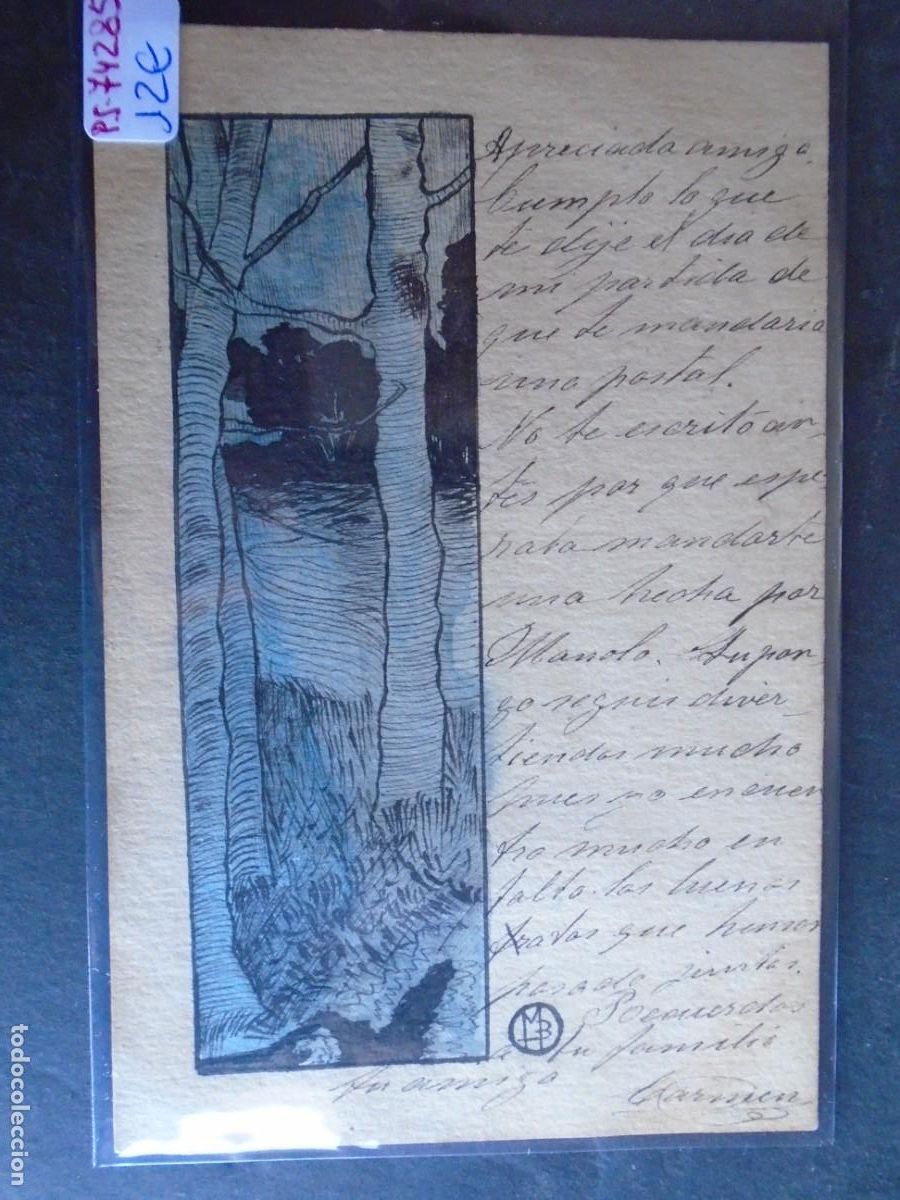 PS-74285
12€
Apreciada amiga.
Cumplo lo que
te dije el dia de
mi partida de
que te mandaria
una postal.
No te escrito an-
tes por que espe-
raba mandarte
una hecha por
Manolo. Supon-
go seguis diver-
tiendos mucho
pues yo encuen
tro mucho en
falta los buenos
ratos que hemos
pasado juntas.
Recuerdos
a tu familia
tu amiga
Carmen
MB
todocoleccion.net